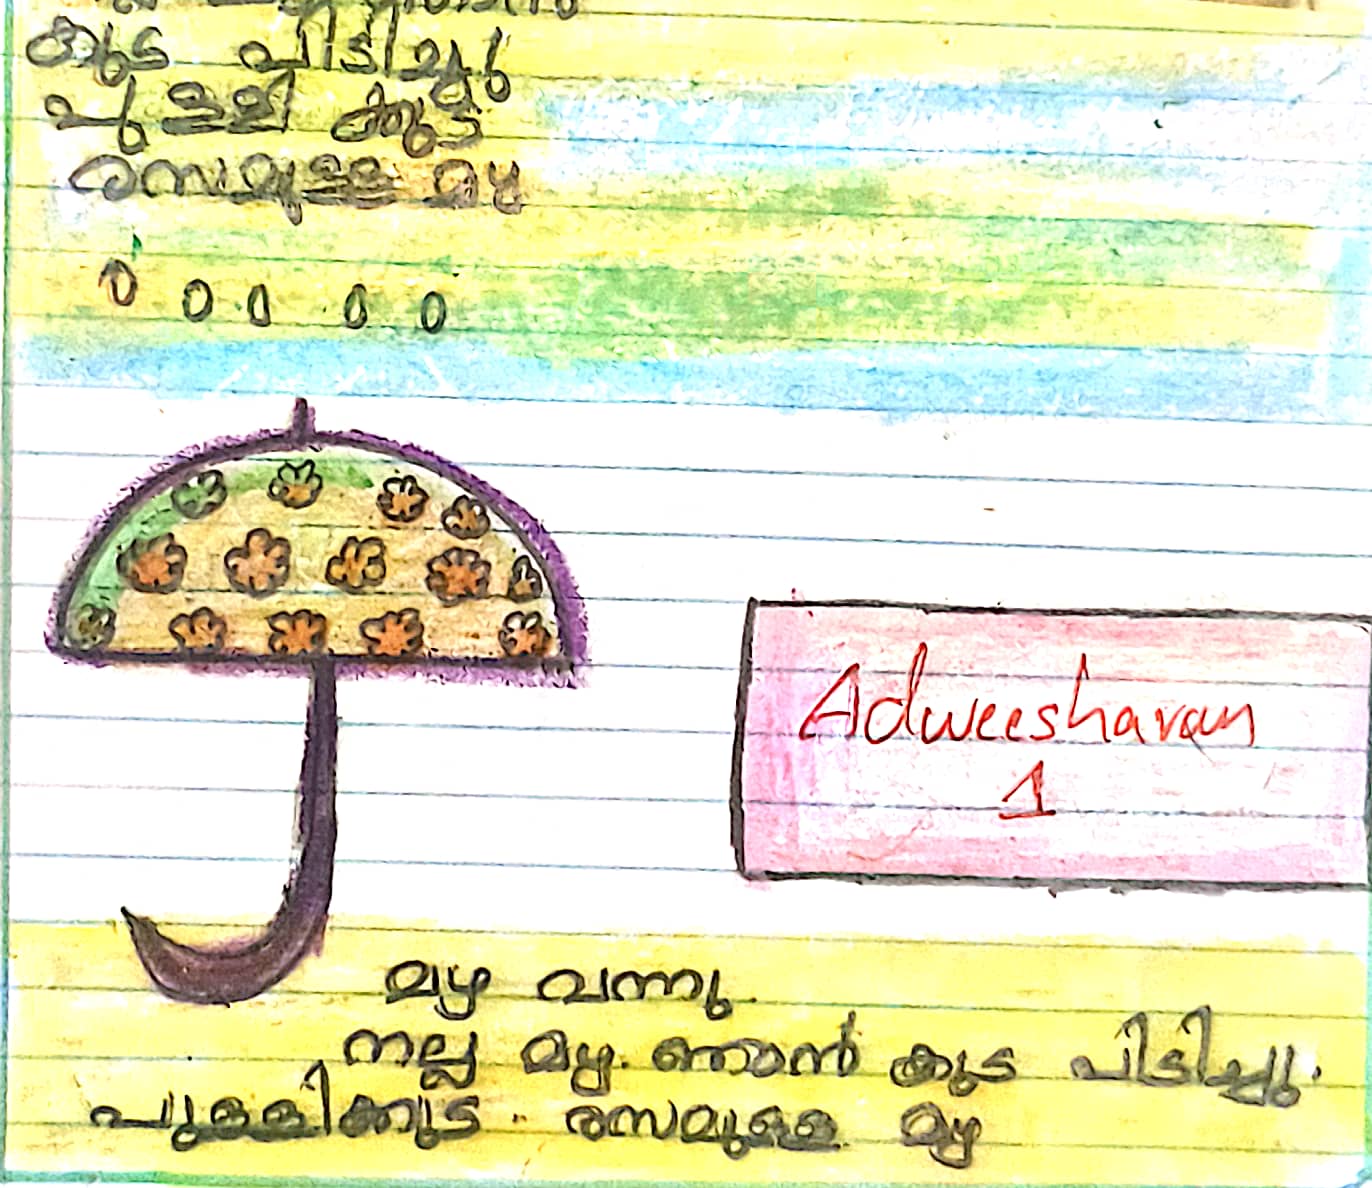 കുട പിടിച്ചു
പുള്ളി കുട
രസമുള്ള മഴ
Adweesharan
1
മഴ വന്നു.
നല്ല മഴ. ഞാൻ കുട പിടിച്ചു.
പുള്ളിക്കുട. രസമുള്ള മഴ